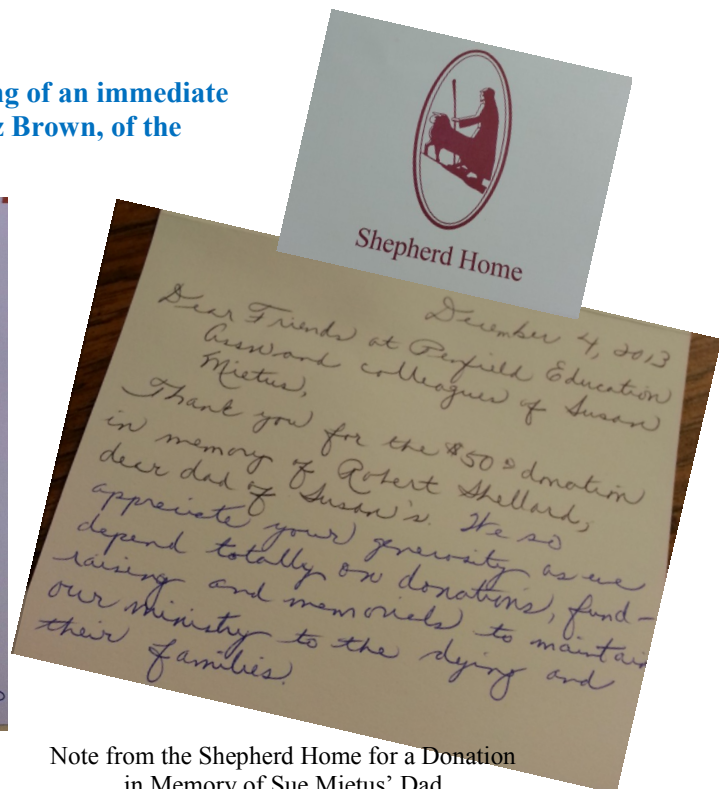 ng of an immediate
z Brown, of the
Shepherd Home
December 4, 2013
Dear Friends at Penfield Education
Assn and colleagues of Susan
Mietus,
Thank you for the $50 donation
in memory of Robert Shellard,
dear dad of Susan's. We so
appreciate your generosity as we
depend totally on donations, fund-
raising and memorials to maintain
our ministry to the dying and
their families.
Note from the Shepherd Home for a Donation
in Memory of Sue Mietus' Dad